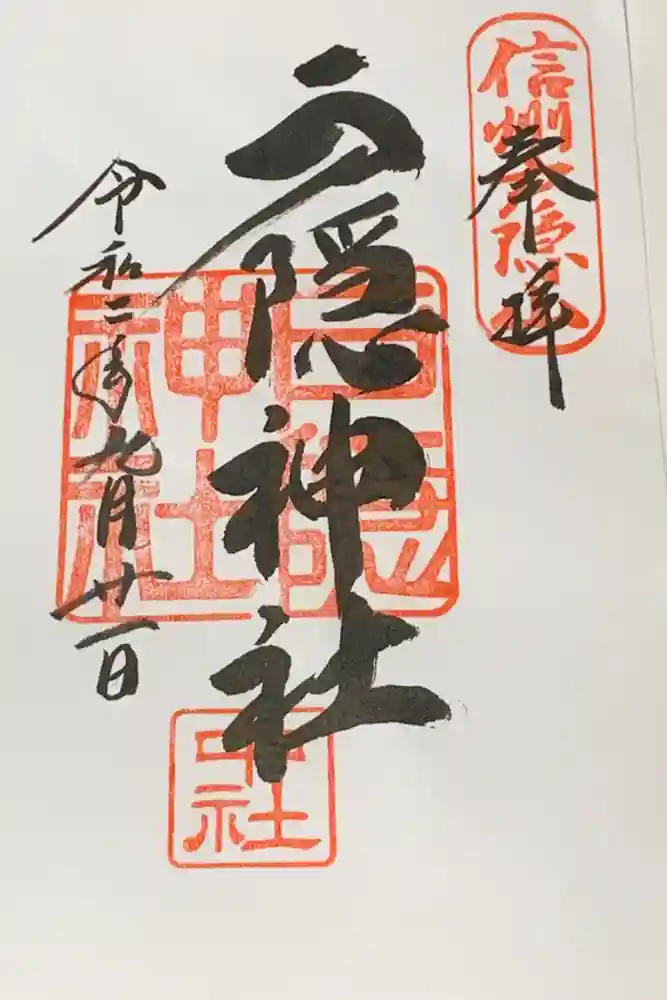 信州戸隠山
奉拝
戸隠神社
戸隠神社
中社
令和二年九月廿一日